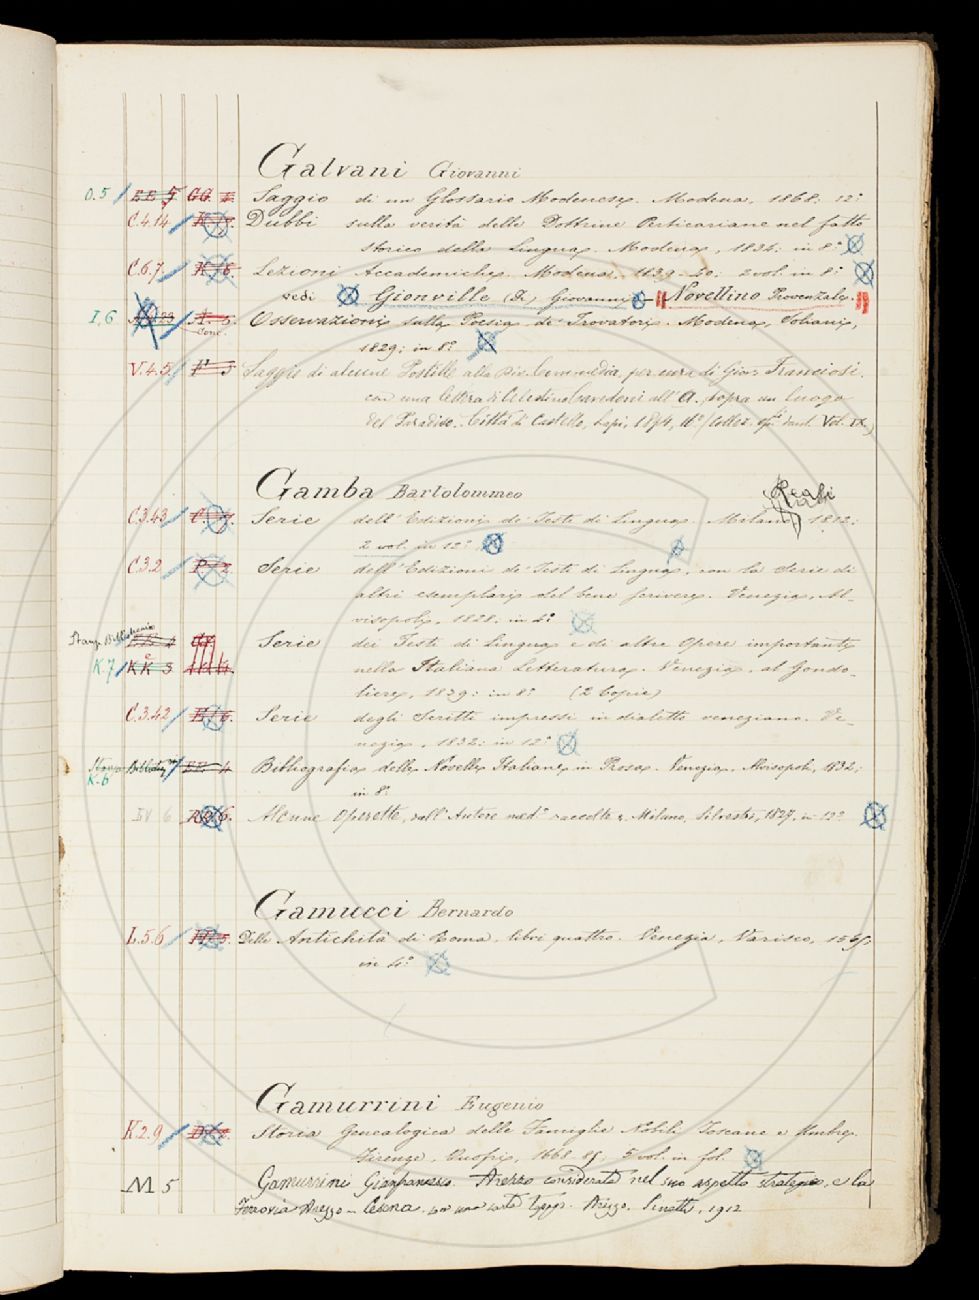 Galvani Giovanni
O.5 Saggio di un Glossario Modenese. Modena, 1868. 12°
C.4.14 Dubbi sulla verità delle Dottrine Perticariane nel fatto
storico della Lingua. Modena, 1834: in 8°
C.6.7. Lezioni Accademiche. Modena. 1839-40: 2 vol. in 8°
vedi Gionville (Di) Giovanni — Novellino Provenzale.
I,6 Osservazioni sulla Poesia de' Trovatori. Modena, Soliani,
1829; in 8°
V.4.5 Saggio di alcune Postille alla Div. Commedia, per cura di Giov. Franciosi.
con una lettera di Celestino Cavedoni all'A. sopra un luogo
del Paradiso. Città di Castello, Lapi, 1894, 16° (Collez. op. dant. Vol. IX)
Gamba Bartolommeo
C.3.43 Serie dell'Edizioni de' Testi di Lingua. Milano, 1812:
2 vol. in 12°
C.3.2 Serie dell'Edizioni de' Testi di Lingua, con la Serie di
altri esemplari del bene scrivere. Venezia, Al-
visopoli, 1828. in 4°
K 7 KK 3 Serie dei Testi di Lingua e di altre Opere importanti
nella Italiana Letteratura. Venezia, al Gondo-
liere, 1839: in 8° (2 Copie)
C.3.42 Serie degli Scritti impressi in dialetto veneziano. Ve-
nezia, 1832: in 12°
K-6 Bibliografia delle Novelle Italiane in Prosa. Venezia, Alvisopoli, 1832;
in 8°
Alcune Operette, dall'Autore med° raccolte. Milano, Silvestri, 1827, in 12°
Gamucci Bernardo
L.5.6 Delle Antichità di Roma, libri quattro. Venezia, Varisco, 1565;
in 4°
Gamurrini Eugenio
K.2.9 Storia Genealogica delle Famiglie Nobili Toscane e Umbre.
Firenze, Onofri, 1668.85. 5 vol. in fol.
M 5 Gamurrini Gianfrancesco. Arezzo considerata nel suo aspetto strategico, e la
Ferrovia Arezzo - Cesena. con una carta topogr. Arezzo. Sinatti, 1912